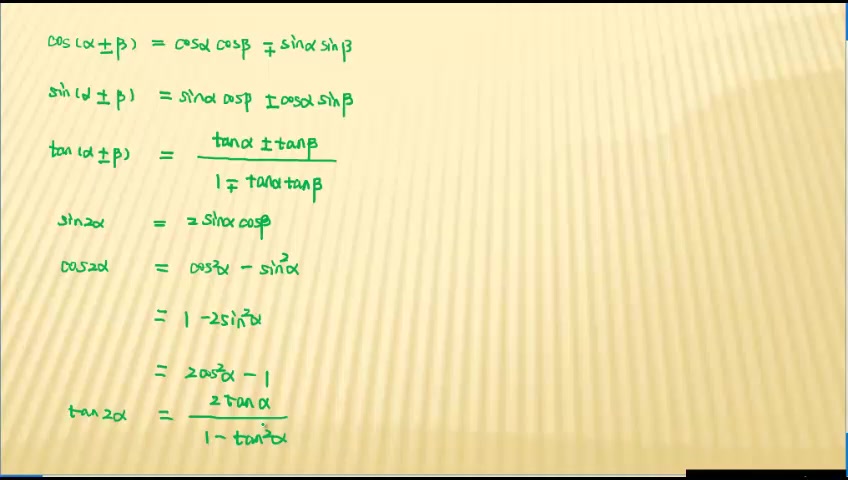 cos(α±β) = cosα cosβ ∓ sinα sinβ
sin(α±β) = sinα cosβ ± cosα sinβ
tan(α±β) = (tanα ± tanβ) / (1 ∓ tanα tanβ)
sin2α = 2 sinα cosβ
cos2α = cos²α − sin²α
= 1 − 2sin²α
= 2cos²α − 1
tan2α = 2tanα / (1 − tan²α)